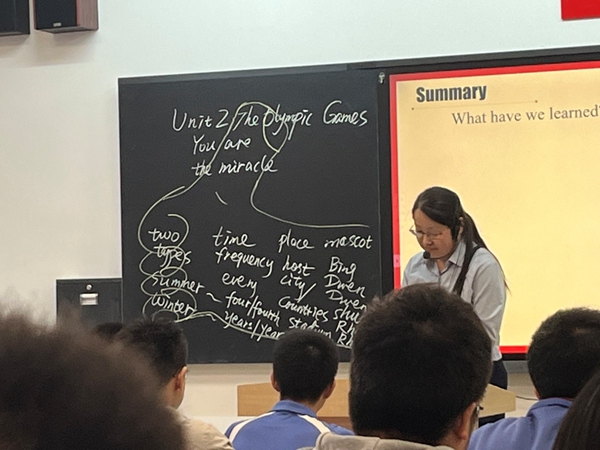 Unit 2 The Olympic Games
You are
the miracle
two time place mascot
types frequency host Bing
Summer every city/ Dwen
Winter ~ four/fourth countries Dwen
years/year stadium Rh
Summary
What have we learned?